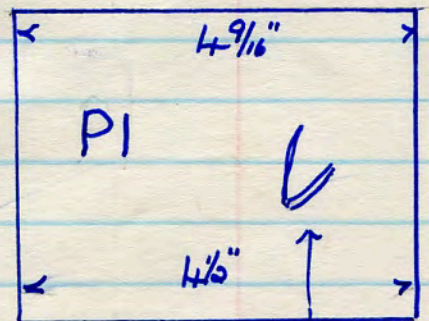 4 9/16"
P1
4 1/2"